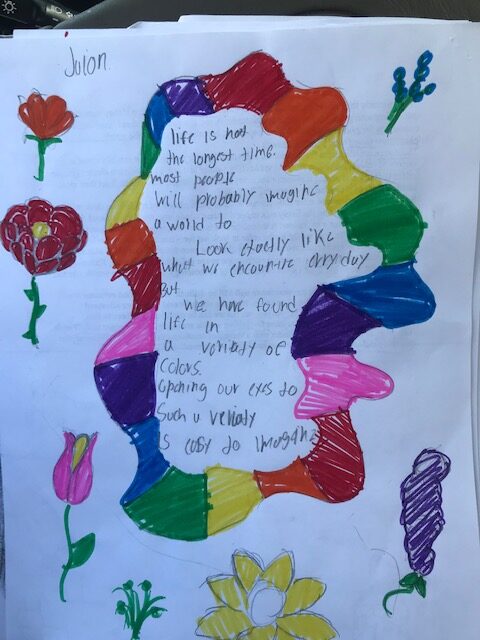 Julon
life is not
the longest time.
most people
will probably imagine
a world to
Look exactly like
what we encountre everyday
But
we have found
life in
a veriaty of
colors.
opening our eyes to
Such u veriaty
is easy to imagine